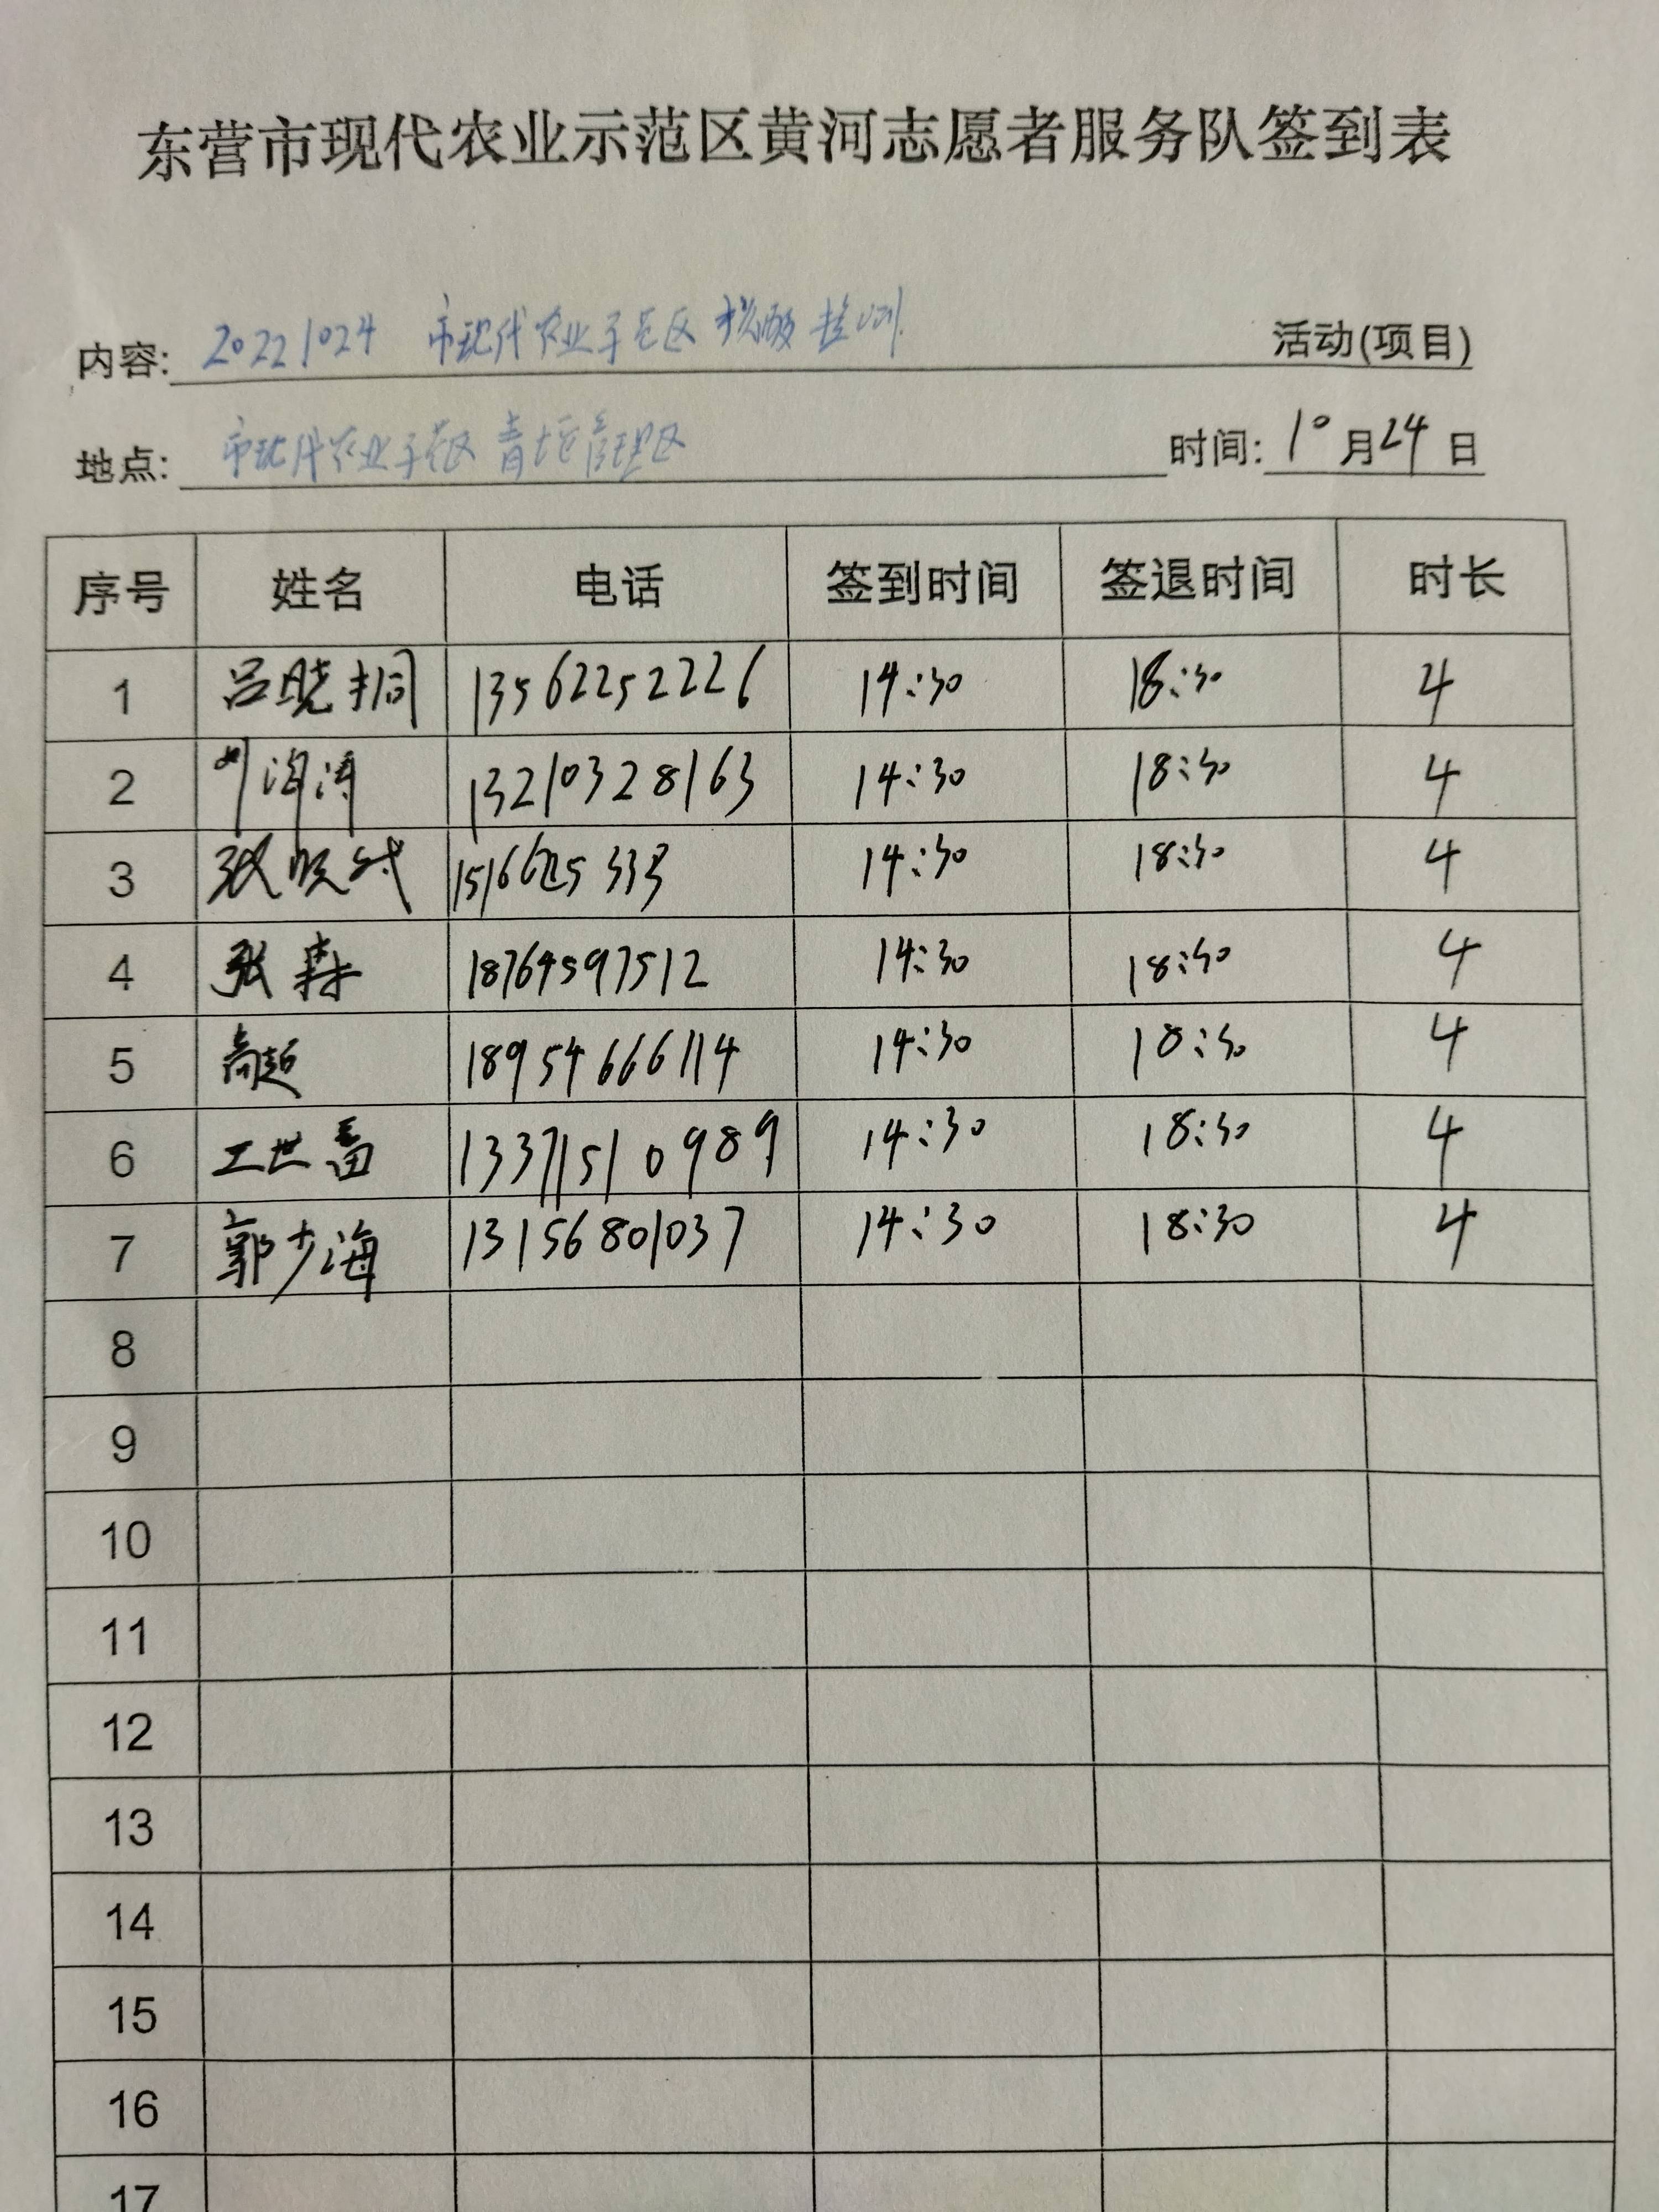 东营市现代农业示范区黄河志愿者服务队签到表
内容: 20221024 市现代农业示范区核酸培训 活动(项目)
地点: 市现代农业示范区青坨管理区 时间: 10月24日
序号 姓名 电话 签到时间 签退时间 时长
1 吕晓桐 13562252226 14:30 18:30 4
2 13210328163 14:30 18:30 4
3 张 14:30 18:30 4
4 张森 18764597512 14:30 18:30 4
5 高超 18954666114 14:30 18:30 4
6 王世富 13371510989 14:30 18:30 4
7 郭少海 13156801037 14:30 18:30 4
8
9
10
11
12
13
14
15
16
17